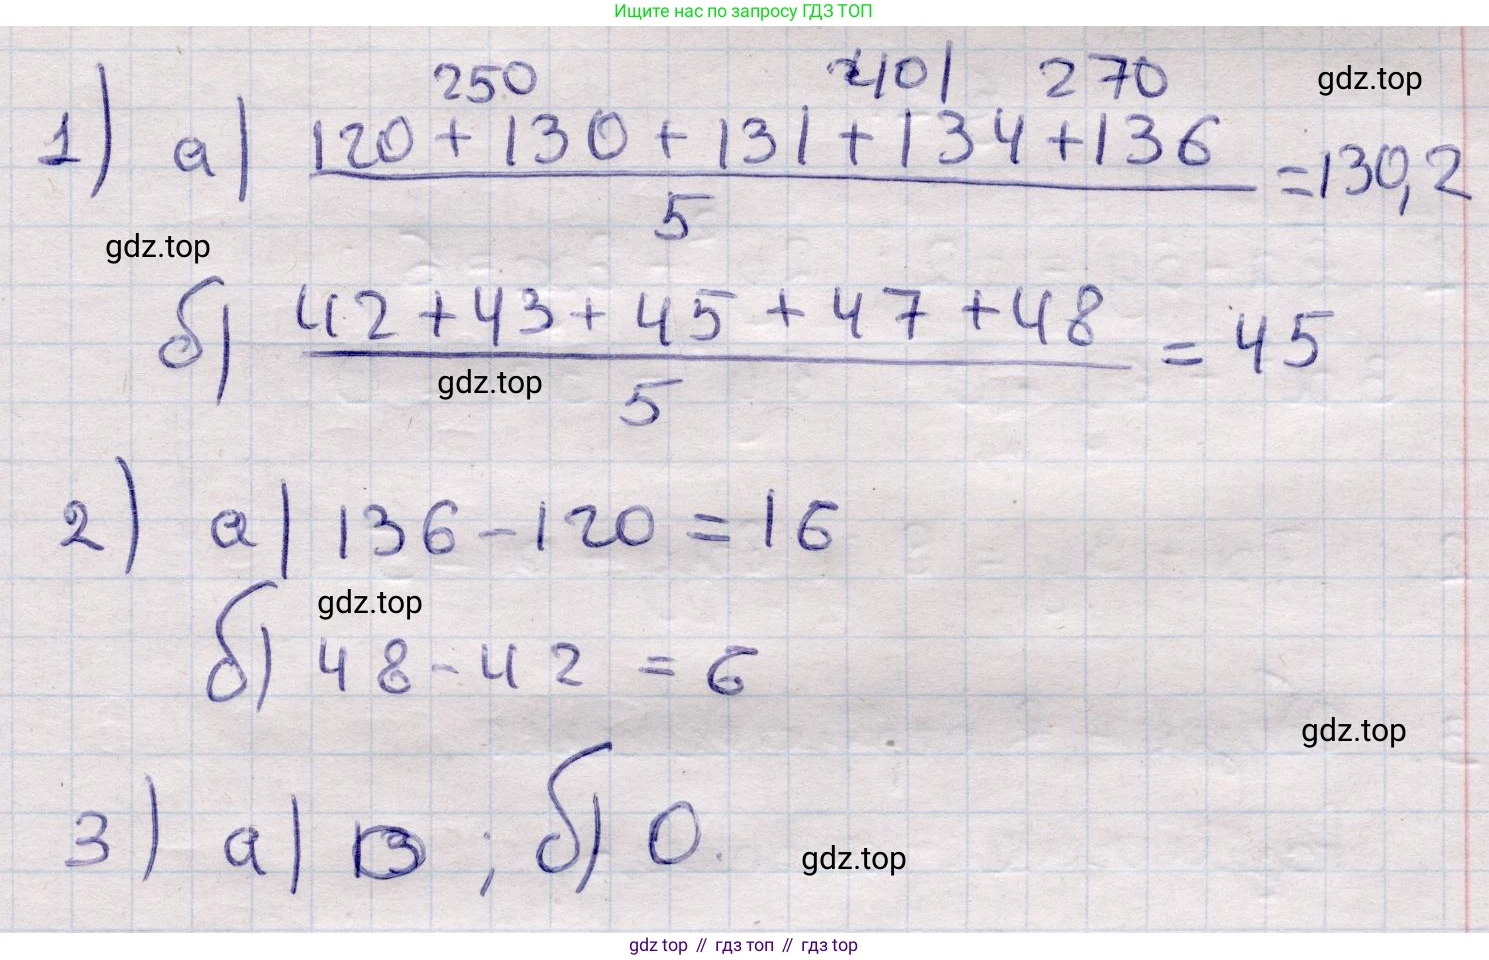 Ищите нас по запросу ГДЗ ТОП
250 401 270 gdz.top
1) а) 120 + 130 + 131 + 134 + 136 = 130,2
5
gdz.top
б) 42 + 43 + 45 + 47 + 48 = 45
gdz.top
5
2) а) 136 - 120 = 16
gdz.top
б) 48 - 42 = 6
gdz.top
3) а) ; б) 0.
gdz.top
gdz top // гдз топ // gdz top